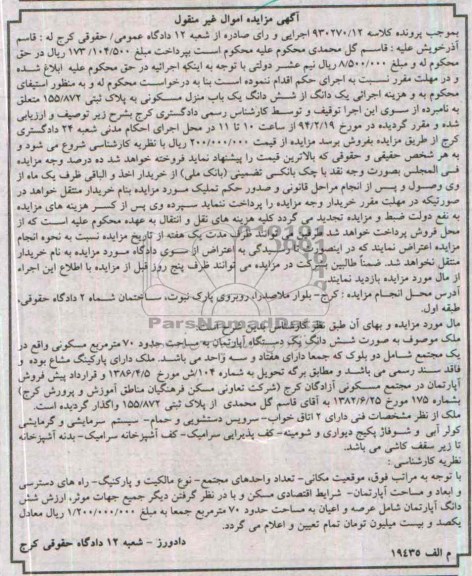 آگهی مزایده اموال غیر منقول
بموجب پرونده کلاسه ۹۳۰۲۷۰/۱۲ اجرایی و رای صادره از شعبه ۱۲ دادگاه عمومی/ حقوقی کرج له : قاسم
آذرخویش علیه : قاسم گل محمدی محکوم علیه محکوم است بپرداخت مبلغ ۱۷۳/۱۰۴/۵۰۰ ریال در حق
محکوم له و مبلغ ۸/۵۰۰/۰۰۰ ریال نیم عشر دولتی با توجه به اینکه اجرائیه در حق محکوم علیه ابلاغ شده
و در مهلت مقرر نسبت به اجرای حکم اقدام ننموده است بنا به درخواست محکوم له و به منظور استیفای
محکوم به و هزینه اجرائی یک دانگ از شش دانگ یک باب منزل مسکونی به پلاک ثبتی ۱۵۵/۸۷۲ متعلق
به نامبرده از سوی این اجرا توقیف و توسط کارشناس رسمی دادگستری کرج بشرح زیر توصیف و ارزیابی
شده و مقرر گردیده در مورخ ۹۴/۲/۱۹ از ساعت ۱۰ تا ۱۱ در محل اجرای احکام مدنی شعبه ۲۴ دادگستری
کرج از طریق مزایده بفروش برسد مزایده از قیمت ۲۰۰/۰۰۰/۰۰۰ ریال با نظریه کارشناسی شروع می شود و
به هر شخص حقیقی و حقوقی که بالاترین قیمت را پیشنهاد نماید فروخته خواهد شد ده درصد وجه مزایده
فی المجلس بصورت وجه نقد یا چک بانکی تضمینی (بانک ملی) از خریدار اخذ و الباقی ظرف یک ماه از
وی وصول و پس از انجام مراحل قانونی و صدور حکم تملیک مورد مزایده بنام خریدار منتقل خواهد در
صورتیکه در مهلت مقرر خریدار وجه مزایده را پرداخت ننماید سپرده وی پس از کسر هزینه های مزایده
به نفع دولت ضبط و مزایده تجدید می گردد کلیه هزینه های نقل و انتقال به عهده محکوم علیه است که از
محل فروش پرداخت خواهد شد مدت یک هفته از تاریخ مزایده نسبت به نحوه انجام
مزایده اعتراض نمایند که در اینصورت تا رسیدگی به اعتراض از سوی دادگاه مورد مزایده به نام خریدار
منتقل نخواهد شد. ضمناً طالبین شرکت در مزایده می توانند ظرف پنج روز قبل از مزایده با اطلاع این اجراء
از مال مورد مزایده بازدید نمایند.
آدرس محل انجام مزایده : کرج- بلوار ملاصدرا، روبروی پارک نبوت، ساختمان شماه ۲ دادگاه حقوقی،
طبقه اول.
مال مورد مزایده و بهای آن طبق نظر کارشناس
ملک موصوف به صورت شش دانگ یک دستگاه آپارتمان به مساحت حدود ۷۰ مترمربع مسکونی واقع در
یک مجتمع شامل دو بلوک که جمعا دارای هفتاد و سه واحد می باشد. ملک دارای پارکینگ مشاع بوده و
فاقد سند رسمی می باشد و مطابق برگه تحویل به شماره ۱۰۴/ش مورخ ۱۳۸۶/۴/۵ و قرارداد پیش فروش
آپارتمان در مجتمع مسکونی آزادگان کرج (شرکت تعاونی مسکن فرهنگیان مناطق آموزش و پرورش کرج)
بشماره ۱۷۵ مورخ ۱۳۸۲/۶/۲۵ به آقای قاسم گل محمدی از پلاک ثبتی ۱۵۵/۸۷۲ واگذار گردیده است.
ملک از نظر مشخصات فنی دارای ۲ اتاق خواب- سرویس دستشویی و حمام- سیستم سرمایشی و گرمایشی
کولر آبی و شوفاژ پکیج دیواری و شومینه- کف پذیرایی سرامیک- کف آشپزخانه سرامیک- بدنه آشپزخانه
تا زیر سقف کاشی می باشد.
نظریه کارشناسی :
با توجه به مراتب فوق، موقعیت مکانی- تعداد واحدهای مجتمع- نوع مالکیت و پارکینگ- راه های دسترسی
و ابعاد و مساحت آپارتمان- شرایط اقتصادی مسکن و با در نظر گرفتن دیگر جمیع جهات موثر، ارزش شش
دانگ آپارتمان شامل عرصه و اعیان به مساحت حدود ۷۰ مترمربع جمعا به مبلغ ۱/۲۰۰/۰۰۰/۰۰۰ ریال معادل
یکصد و بیست میلیون تومان تمام تعیین و اعلام می گردد.
دادورز - شعبه ۱۲ دادگاه حقوقی کرج
م الف ۱۹۴۳۵